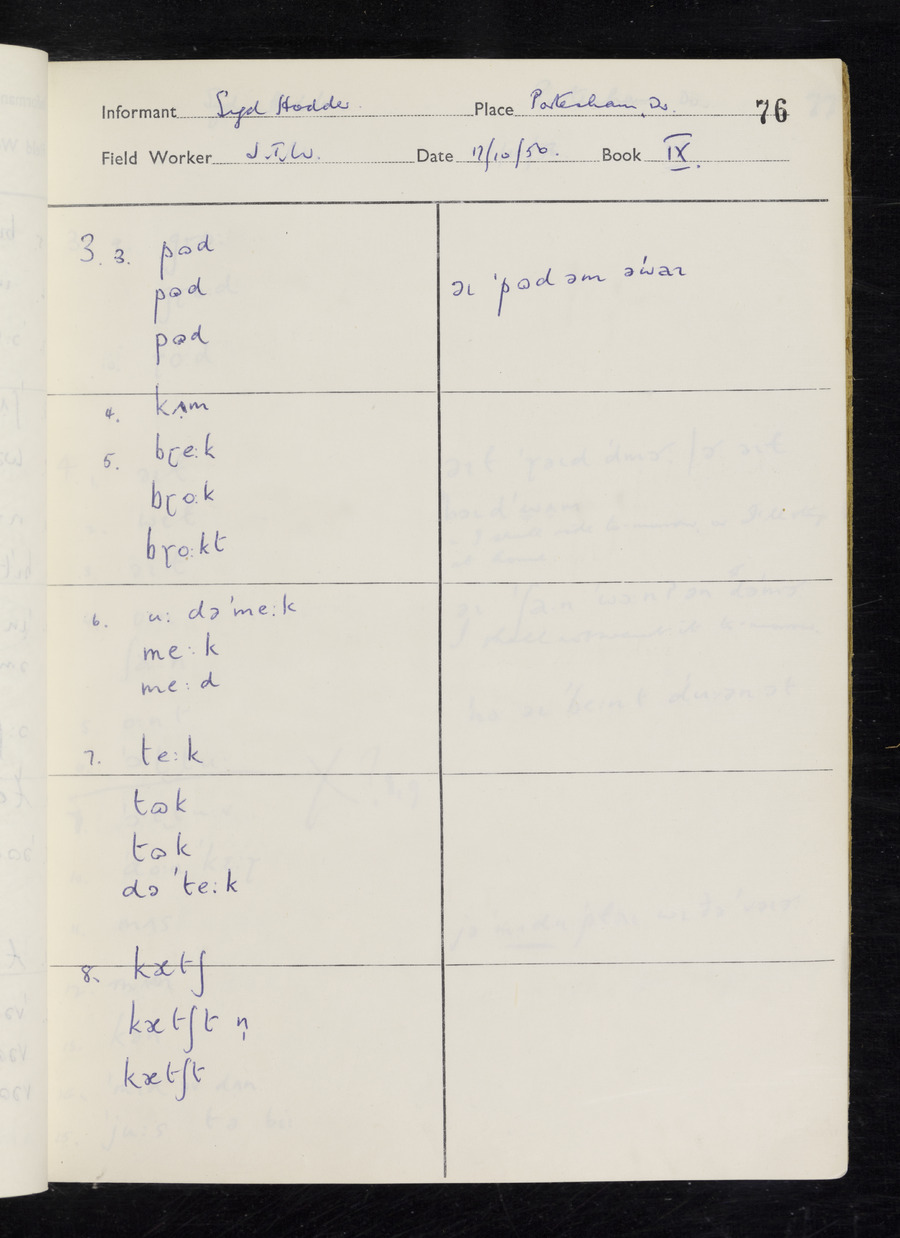 Informant Syd Hodder Place Portesham, Do. 76
Field Worker J.T.W. Date 17/10/56. Book IX.
3. 3. pɷd
pɷd əɪ ˈpɷd əm əˈwaɪ
pɷd
4. kʌm
5. bɽe:k
bɽo:k
bɽo:kt
6. u: dəˈme:k
me:k
me:d
7. te:k
tɷk
tɷk
dəˈte:k
8. kætʃ
kætʃt n̩
kætʃt